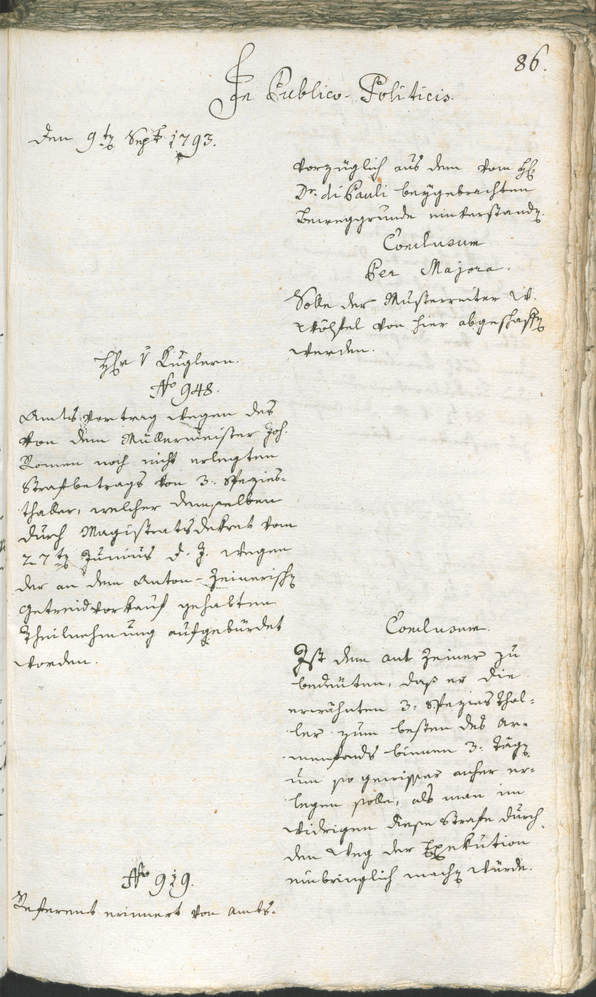 86.
In Publico-Politicis.
Den 9t Sept 1793.
vorzüglich aus dem vom H
Dr. di Pauli beygebrachten
Beweggründe einverstand
Conclusum
Per Majora.
Solle der Musterreiter
von hier abgeschaft
werden.
H v Kuglern.
No 948.
Amtsvortrag wegen des
von dem Müllermeister Joh
Romen noch nicht erlegten
Strafbetrags von 3. Spezies-
thaler, welcher demselben
durch Magistratsdekret vom
27t Junius d. J. wegen
der an dem Anton-Zeinerisch
Getreidvorkauf gehalten
Theilnehmung aufgebürdet
worden.
Conclusum.
Ist dem ant Zeiner zu
bedeüten, daß er die
erwähnten 3. Spezies Thal-
ler zum besten des Ar-
menfonds binnen 3. Täg
um so gewisser anher er-
legen solle, als man im
widrigen diese Strafe durch
den Weg der Exekution
einbringlich mach würde.
No 919.
Referent erinnert von Amts-